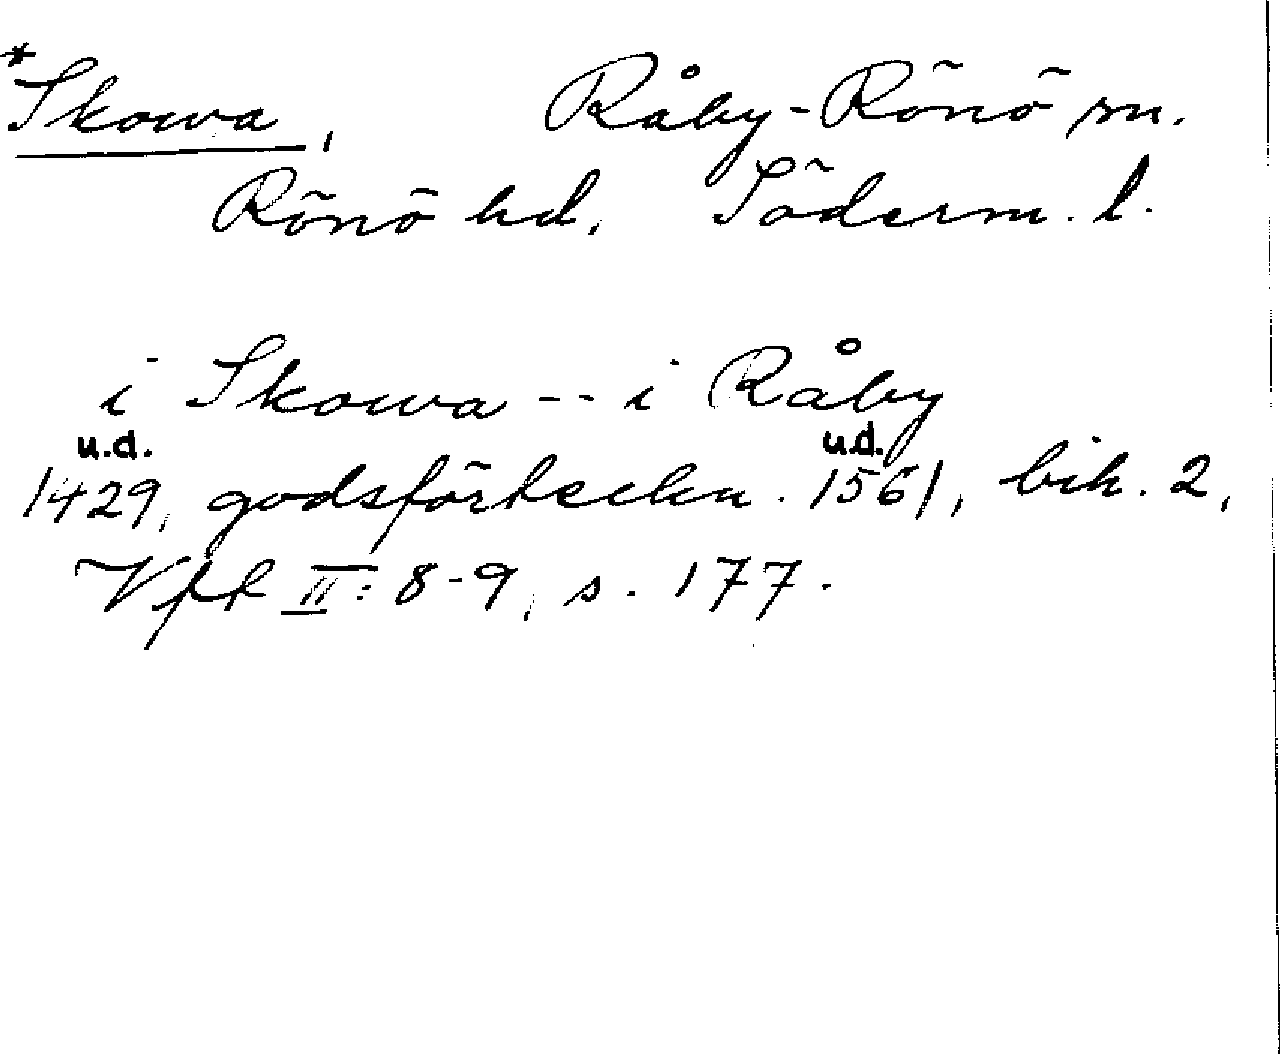 *Skowa, Råby-Rönö sn.
Rönö hd, Söderm. l.
i Skowa -- i Råby
u.d. u.d.
1429, godsförteckn. 1561, bih. 2,
Vfk II: 8-9, s. 177.